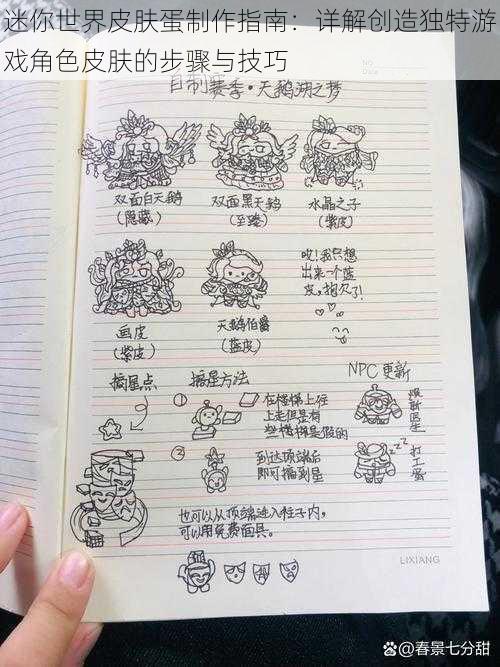 迷你世界皮肤蛋制作指南：详解创造独特游
戏角色皮肤的步骤与技巧
NO.
Date
自制赛季·天鹅湖之梦
双面白天鹅
（隐藏）
双面黑天鹅
（至臻）
水晶之子
（紫皮）
画皮
（紫皮）
天鹅伯爵
（蓝皮）
哎！我只想
出来一个蓝
皮，抱歉了！
摘星点
摘星方法
①
在楼梯上往
上走但是有
些楼梯是假的
②
到达顶端后
即可摘到星
也可以从顶端进入柱子内，
可以用免费面具。
NPC 更新
焕新医生
打工蛋
zz
LIXIANG
春景七分甜